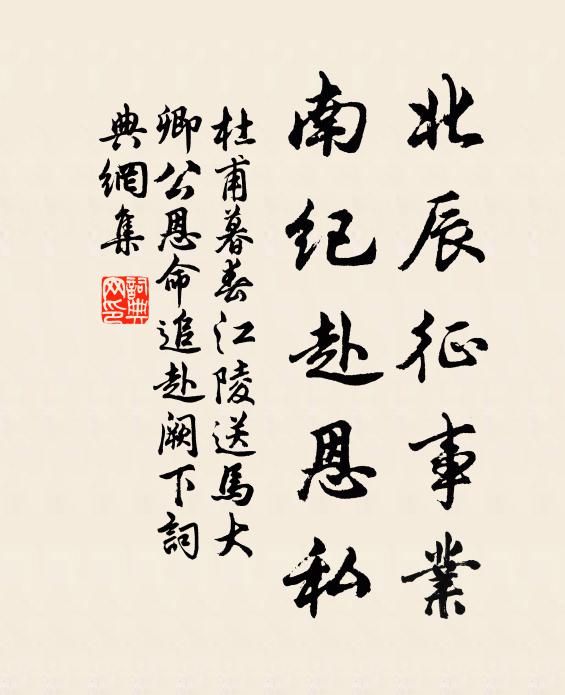 北辰征事業
南紀赴恩私
杜甫暮春江陵送馬大
卿公恩命追赴闕下詞
典網集
詞典網印